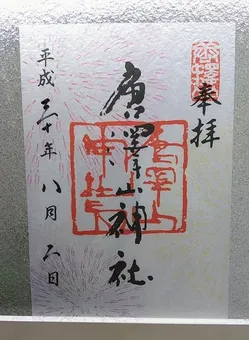 奉拝
唐澤山神社
平成三十年八月六日